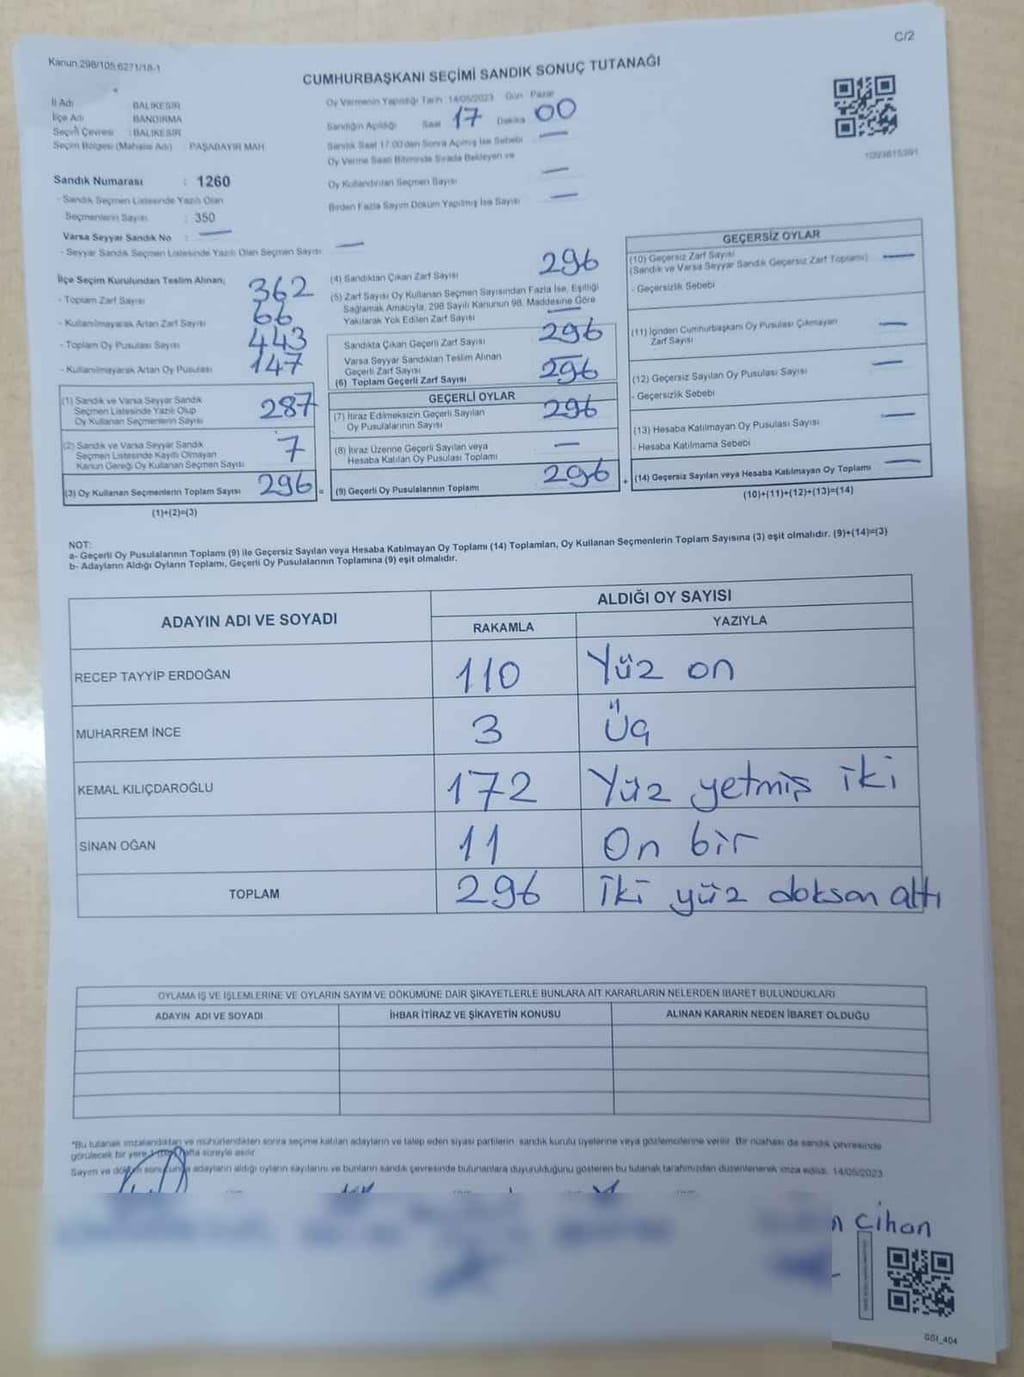 Kanun.298/105,6271/18-1
C/2
CUMHURBAŞKANI SEÇİMİ SANDIK SONUÇ TUTANAĞI
İl Adı BALIKESİR
İlçe Adı BANDIRMA
Seçim Çevresi : BALIKESİR
Seçim Bölgesi (Mahalle Adı) PAŞABAYIR MAH
Sandık Numarası : 1260
- Sandık Seçmen Listesinde Yazılı Olan
Seçmenlerin Sayısı : 350
Varsa Seyyar Sandık No : —
- Seyyar Sandık Seçmen Listesinde Yazılı Olan Seçmen Sayısı —
Oy Vermenin Yapıldığı Tarih 14/05/2023 Gün Pazar
Sandığın Açıldığı Saat 17 Dakika 00
Sandık Saat 17:00'den Sonra Açılmış İse Sebebi —
Oy Verme Saati Bitiminde Sırada Bekleyen ve
Oy Kullandırılan Seçmen Sayısı —
Birden Fazla Sayım Döküm Yapılmış İse Sayısı —
İlçe Seçim Kurulundan Teslim Alınan;
- Toplam Zarf Sayısı 362
- Kullanılmayarak Artan Zarf Sayısı 66
- Toplam Oy Pusulası Sayısı 443
- Kullanılmayarak Artan Oy Pusulası 147
(1) Sandık ve Varsa Seyyar Sandık
Seçmen Listesinde Yazılı Olup
Oy Kullanan Seçmenlerin Sayısı 287
(2) Sandık ve Varsa Seyyar Sandık
Seçmen Listesinde Kayıtlı Olmayan
Kanun Gereği Oy Kullanan Seçmen Sayısı 7
(3) Oy Kullanan Seçmenlerin Toplam Sayısı 296 =
(1)+(2)=(3)
(4) Sandıktan Çıkan Zarf Sayısı 296
(5) Zarf Sayısı Oy Kullanan Seçmen Sayısından Fazla İse, Eşitliği
Sağlamak Amacıyla, 298 Sayılı Kanunun 98. Maddesine Göre
Yakılarak Yok Edilen Zarf Sayısı —
Sandıkta Çıkan Geçerli Zarf Sayısı 296
Varsa Seyyar Sandıktan Teslim Alınan
Geçerli Zarf Sayısı —
(6) Toplam Geçerli Zarf Sayısı 296
GEÇERLİ OYLAR
(7) İtiraz Edilmeksizin Geçerli Sayılan
Oy Pusulalarının Sayısı 296
(8) İtiraz Üzerine Geçerli Sayılan veya
Hesaba Katılan Oy Pusulası Toplamı —
(9) Geçerli Oy Pusulalarının Toplamı 296 +
GEÇERSİZ OYLAR
(10) Geçersiz Zarf Sayısı —
(Sandık ve Varsa Seyyar Sandık Geçersiz Zarf Toplamı)
- Geçersizlik Sebebi
(11) İçinden Cumhurbaşkanı Oy Pusulası Çıkmayan
Zarf Sayısı —
(12) Geçersiz Sayılan Oy Pusulası Sayısı —
- Geçersizlik Sebebi
(13) Hesaba Katılmayan Oy Pusulası Sayısı —
- Hesaba Katılmama Sebebi
(14) Geçersiz Sayılan veya Hesaba Katılmayan Oy Toplamı —
(10)+(11)+(12)+(13)=(14)
NOT:
a- Geçerli Oy Pusulalarının Toplamı (9) ile Geçersiz Sayılan veya Hesaba Katılmayan Oy Toplamı (14) Toplamları, Oy Kullanan Seçmenlerin Toplam Sayısına (3) eşit olmalıdır. (9)+(14)=(3)
b- Adayların Aldığı Oyların Toplamı, Geçerli Oy Pusulalarının Toplamına (9) eşit olmalıdır.
ADAYIN ADI VE SOYADI
ALDIĞI OY SAYISI
RAKAMLA YAZIYLA
RECEP TAYYİP ERDOĞAN 110 Yüz on
MUHARREM İNCE 3 Üç
KEMAL KILIÇDAROĞLU 172 Yüz yetmiş iki
SİNAN OĞAN 11 On bir
TOPLAM 296 İki yüz doksan altı
OYLAMA İŞ VE İŞLEMLERİNE VE OYLARIN SAYIM VE DÖKÜMÜNE DAİR ŞİKAYETLERLE BUNLARA AİT KARARLARIN NELERDEN İBARET BULUNDUKLARI
ADAYIN ADI VE SOYADI İHBAR İTİRAZ VE ŞİKAYETİN KONUSU ALINAN KARARIN NEDEN İBARET OLDUĞU
*Bu tutanak imzalandıktan ve mühürlendikten sonra seçime katılan adayların ve talep eden siyasi partilerin sandık kurulu üyelerine veya gözlemcilerine verilir. Bir nüshası da sandık çevresinde
görülecek bir yere hafta süreyle asılır
Sayım ve döküm adayların aldığı oyların sayılarını ve bunların sandık çevresinde bulunanlara duyurulduğunu gösteren bu tutanak tarafımızdan düzenlenerek imza edildi. 14/05/2023
Cihan
SSI_404